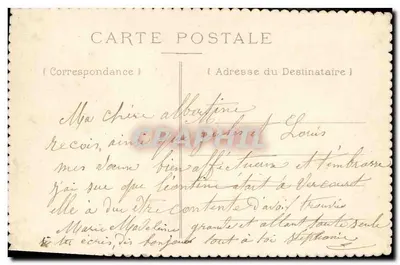 CARTE POSTALE
(Correspondance)
(Adresse du Destinataire)
Ma chère albertine
reçois, ainsi que Louis
mes vœux bien affectueux et t'embrasse
j'ai su que léontine était à
elle a du être contente d'avoir trouvé
Marie Madeleine grande et allant toute seule
écris, dis bonjour tout à toi Stéphanie